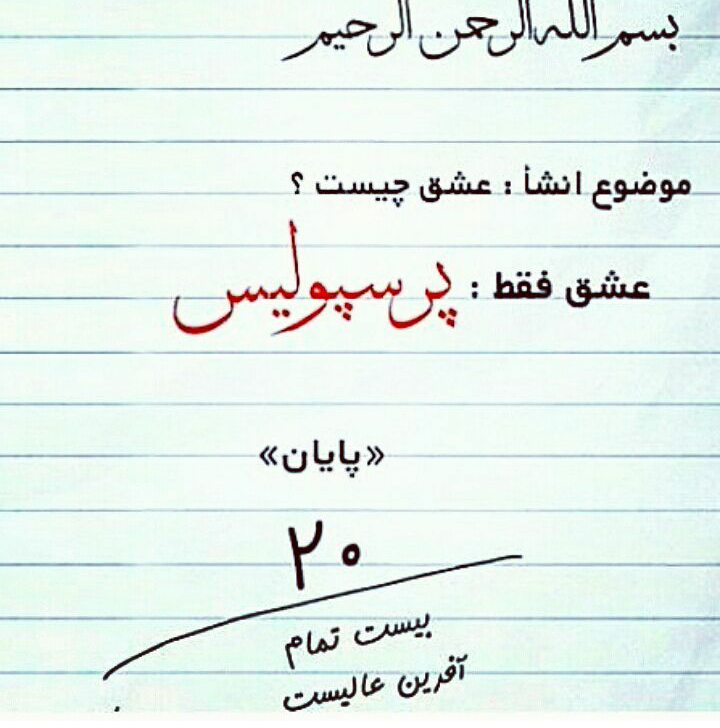 بسم الله الرحمن الرحیم
موضوع انشأ : عشق چیست ؟
عشق فقط : پرسپولیس
«پایان»
۲۰
بیست تمام
آفرین عالیست